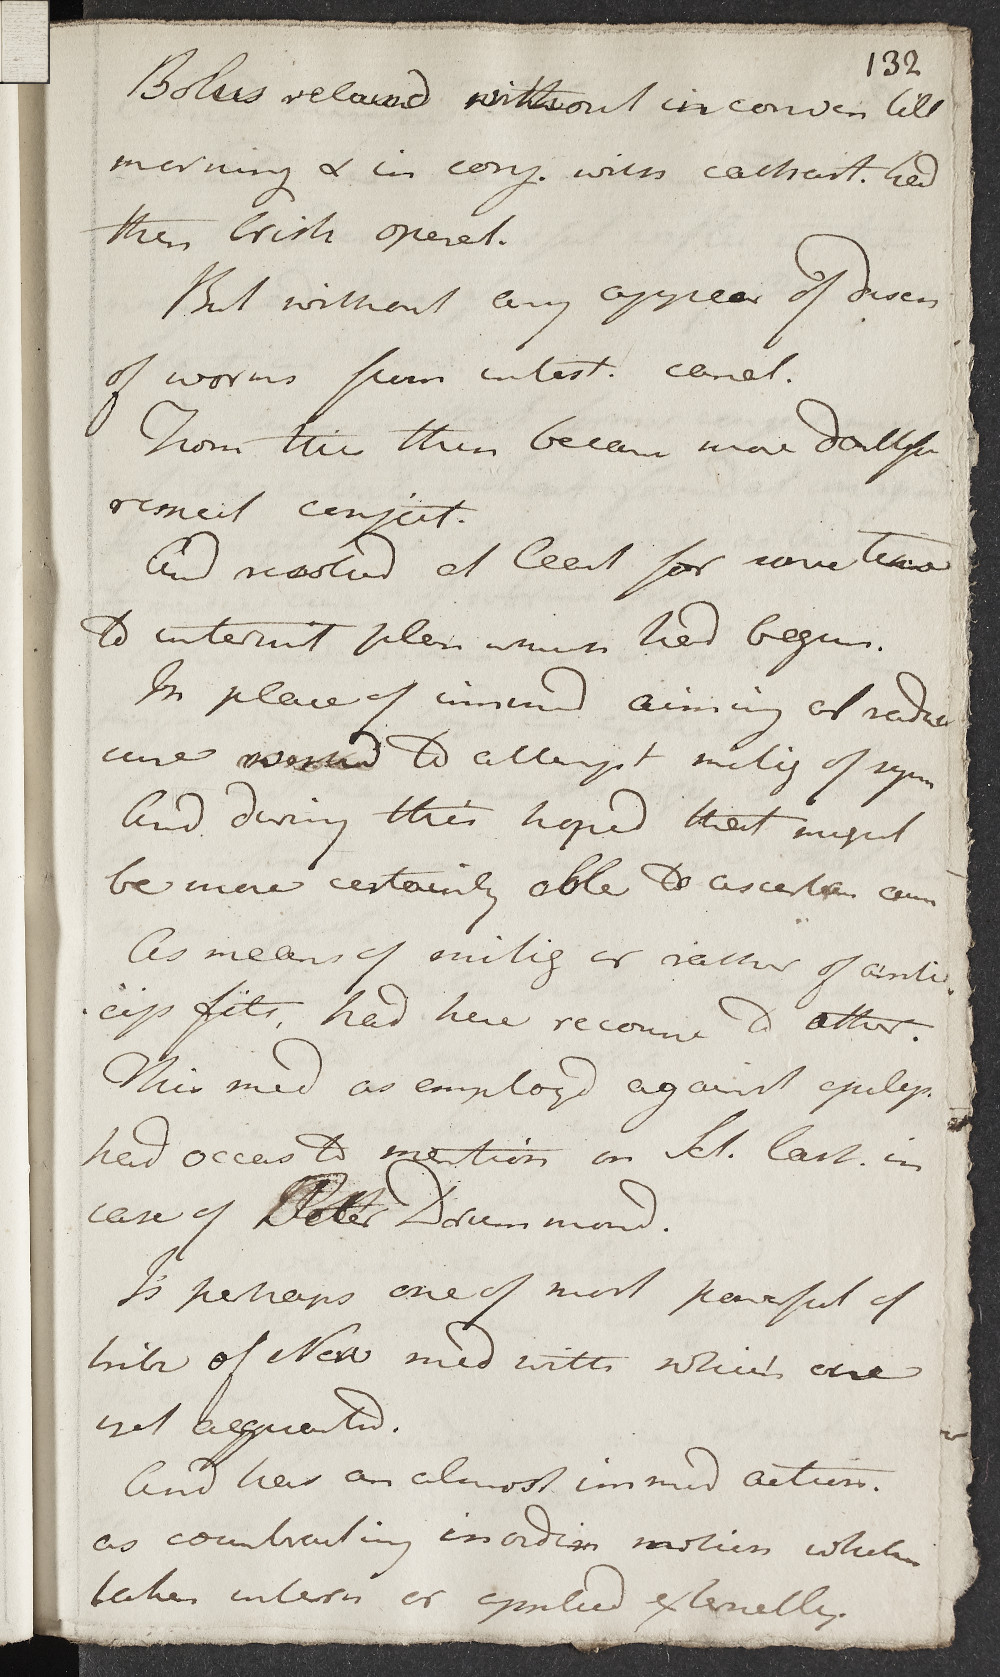 132
Bolus retaind without inconven till
morning & in conj. with cathart. had
then brisk operat.
But without any appear of disch
of worms from intest. canal.
From this then became more doubtful
respect conject.
And resolved at least for some time
to intermit plan which had begun.
In place of immed aiming at radica
cure to attempt mitig of sym
And during this hoped that might
be more certainly able to ascertain caus
As means of mitig or rather of anti
cip fits, had here recourse to æther.
This med as employd against epilep.
had occas to mention on Sct. last. in
case of Peter Drummond.
Is perhaps one of most powerful of
tribe of Nerv med with which are
yet acquaintd.
And has an almost immed action.
as counteracting inordin motion whether
taken intern or applied externally.